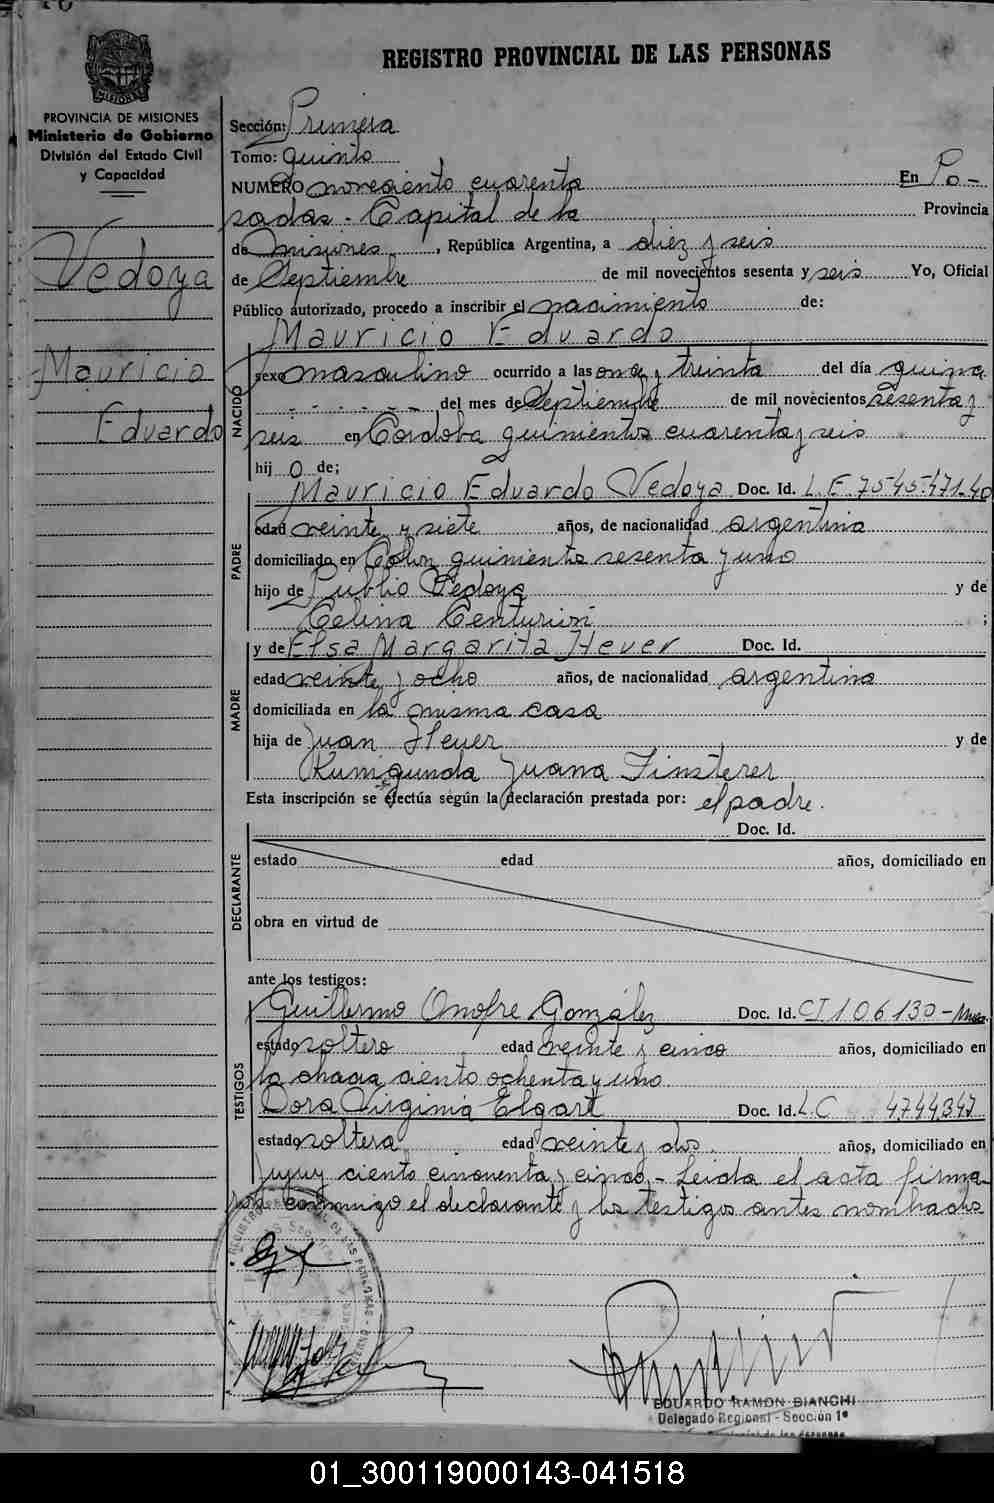 REGISTRO PROVINCIAL DE LAS PERSONAS
MISIONES
PROVINCIA DE MISIONES
Ministerio de Gobierno
División del Estado Civil
y Capacidad
Vedoya
Mauricio
Eduardo
Sección: Primera
Tomo: quinto
NUMERO noveciento cuarenta En Po-
sadas - Capital de la Provincia
de Misiones, República Argentina, a diez y seis
de Septiembre de mil novecientos sesenta y seis Yo, Oficial
Público autorizado, procedo a inscribir el nacimiento de:
Mauricio Eduardo
NACIDO
sexo masculino ocurrido a las once y treinta del día quince
del mes de Septiembre de mil novecientos sesenta y
seis en Córdoba quinientos cuarenta y seis
hij o de;
PADRE
Mauricio Eduardo Vedoya Doc. Id. L.E. 7545471-40
edad veinte y siete años, de nacionalidad argentina
domiciliado en Colón quinientos sesenta y uno
hijo de Publio Vedoya y de
Celina Centurión ;
MADRE
y de Elsa Margarita Hever Doc. Id.
edad veinte y ocho años, de nacionalidad argentina
domiciliada en la misma casa
hija de Juan Hever y de
Kunigunda Juana Finsterer
Esta inscripción se efectúa según la declaración prestada por: el padre.
Doc. Id.
DECLARANTE
estado edad años, domiciliado en
obra en virtud de
ante los testigos:
TESTIGOS
Guillermo Onofre González Doc. Id. CI 106130-Mnes.
estado soltero edad veinte y cinco años, domiciliado en
la chacra ciento ochenta y uno
Dora Virginia Elgart Doc. Id. L.C 4.744.347
estado soltera edad veinte y dos años, domiciliado en
Jujuy ciento cincuenta y cinco - Leida el acta firma-
ron conmigo el declarante y los testigos antes nombrados
EDUARDO RAMON BIANCHI
Delegado Regional - Sección 1ª
Provincial de las Personas
01_300119000143-041518